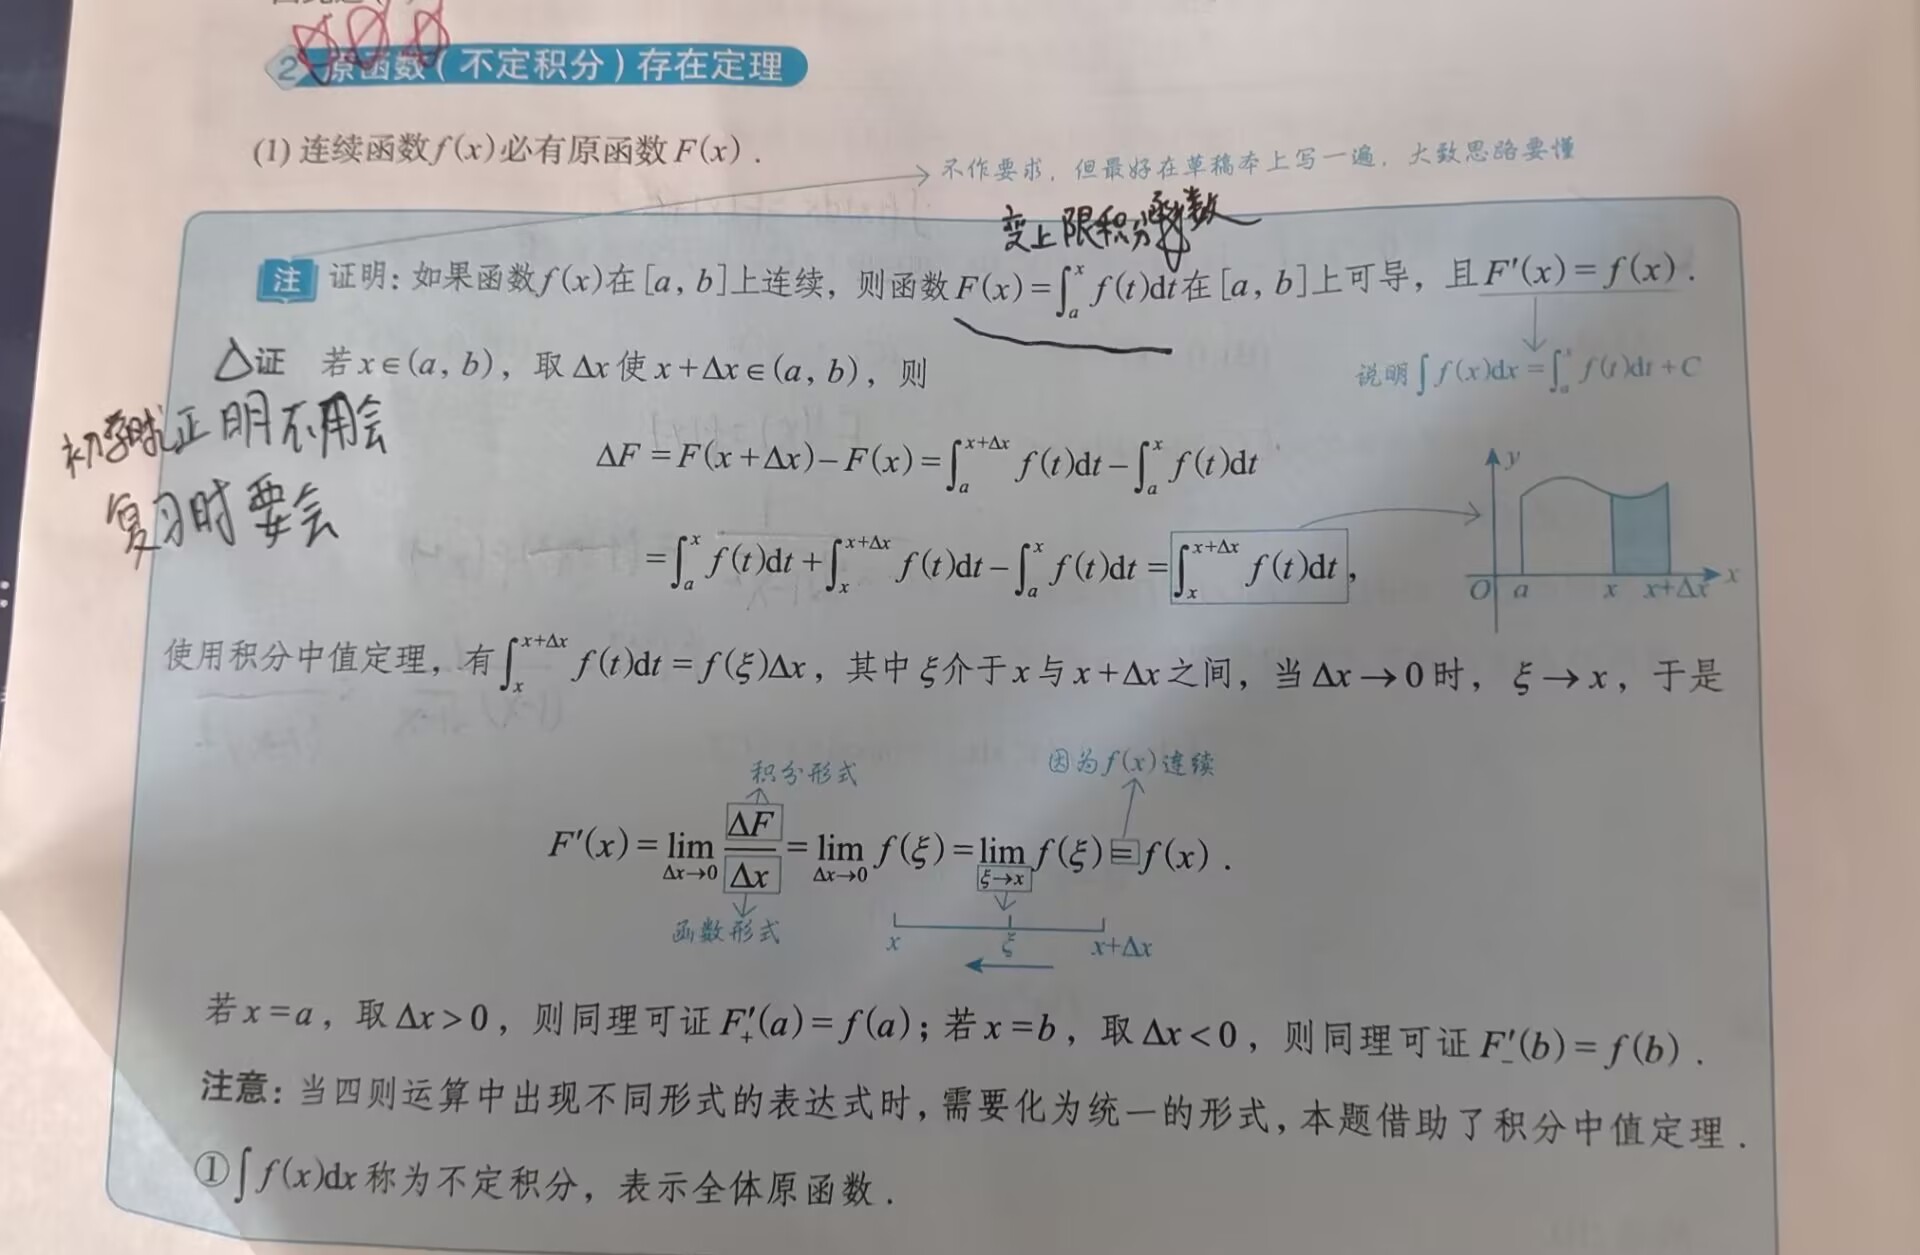 2 原函数(不定积分)存在定理
(1) 连续函数f(x)必有原函数F(x).
不作要求,但最好在草稿本上写一遍,大致思路要懂
变上限积分函数
注 证明:如果函数f(x)在[a, b]上连续,则函数F(x)=∫ₐˣ f(t)dt在[a, b]上可导,且F′(x)=f(x).
△证 若x∈(a, b),取Δx使x+Δx∈(a, b),则
说明∫f(x)dx=∫ₐˣ f(t)dt+C
初学时证明不用会
复习时要会
ΔF=F(x+Δx)−F(x)=∫ₐ^(x+Δx) f(t)dt−∫ₐˣ f(t)dt
=∫ₐˣ f(t)dt+∫ₓ^(x+Δx) f(t)dt−∫ₐˣ f(t)dt=∫ₓ^(x+Δx) f(t)dt,
y
O a x x+Δx x
使用积分中值定理,有∫ₓ^(x+Δx) f(t)dt=f(ξ)Δx,其中ξ介于x与x+Δx之间,当Δx→0时,ξ→x,于是
积分形式 因为f(x)连续
F′(x)=lim_(Δx→0) ΔF/Δx=lim_(Δx→0) f(ξ)=lim_(ξ→x) f(ξ)=f(x).
函数形式 x ξ x+Δx
若x=a,取Δx>0,则同理可证F′₊(a)=f(a);若x=b,取Δx<0,则同理可证F′₋(b)=f(b).
注意:当四则运算中出现不同形式的表达式时,需要化为统一的形式,本题借助了积分中值定理.
①∫f(x)dx称为不定积分,表示全体原函数.